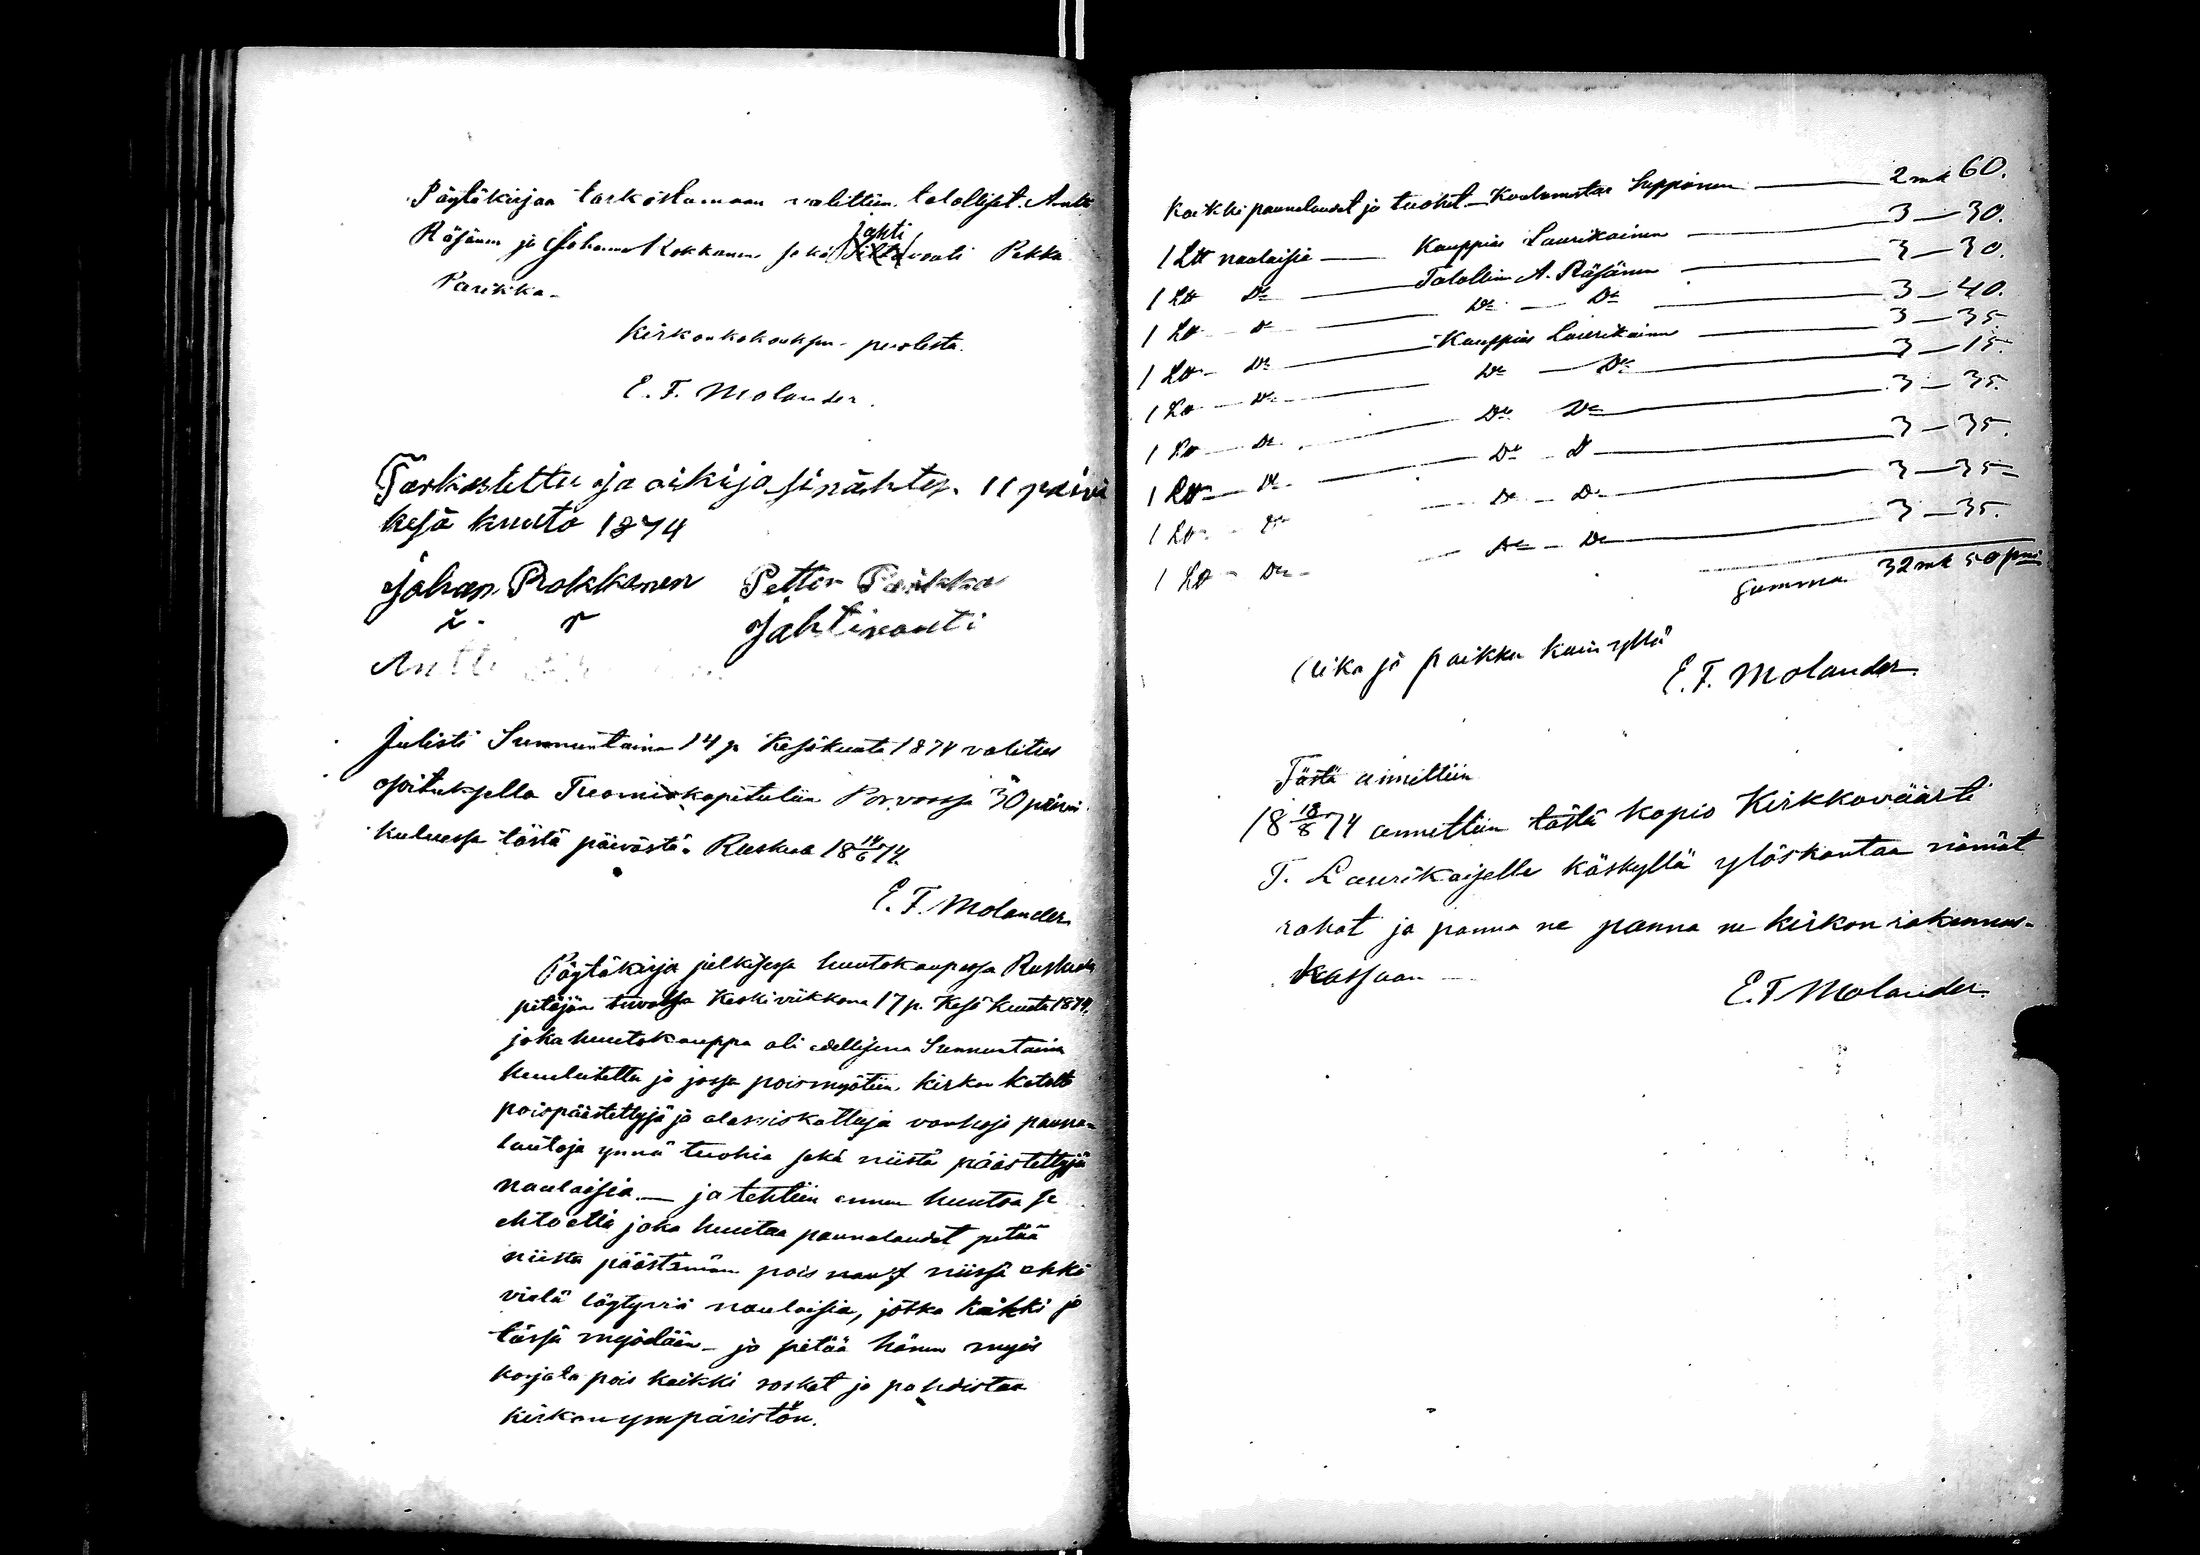 Pöytäkirjaa tarkastamaan valittiin talolliset Antti
Räsänen ja Johan Kokkanen sekä jahtivouti Pekka
Parikka.
Kirkonkokouksen puolesta.
E. F. Molander.
Tarkastettu ja oikija si nähty. 11 päivä
kesä kuuta 1874
Johan Rokkanen Petter Parikka
Jahtivouti
Antti
Julisti Sunnuntaina 14 p. Kesäkuuta 1874 valitus
osituksella Tuomiokapituliin Porvoossa 30 päivän
kuluessa tästä päivästä. Ruskeala 18 14/6 74.
E. F. Molander
Pöytäkirja julkisessa huutokaupassa Ruskealan
pitäjän tuvassa Keskiviikkona 17 p. Kesä kuuta 1874,
joka huutokauppa oli edellisenä Sunnuntaina
kuulutettu ja jossa poismyötiin kirkon katolta
poispäästettyjä ja alasviskattuja vanhoja paanu-
lautoja ynnä tuohia sekä niistä päästettyjä
naulaisia — ja tehtiin ennen huutoa se
ehto että joka huutaa paanulaudat pitää
niistä päästämän pois niissä ehkä
vielä löytyviä naulaisia, jotka kaikki jo
tässä myödään — ja pitää hänen myös
korjata pois kaikki roskat ja puhdistaa
kirkon ympäristön.
Kaikki paanulaudat ja tuohet — Koulumestar Seppänen — 2 mk 60.
1 L℔ naulaisia — Kauppias Laurikainen — 3 — 30.
1 L℔ Do — Talollinen A. Räsänen — 3 — 30.
1 L℔ Do — Do — Do — 3 — 40.
1 L℔ — Do — Kauppias Laurikainen — 3 — 35
1 L℔ — Do — Do — Do — 3 — 15.
1 L℔ — Do — Do Do — 3 — 35.
1 L℔ — Do — Do — Do — 3 — 35.
1 L℔ — Do — Do — Do — 3 — 35
1 L℔ — Do — Do — Do — 3 — 35.
Summa 32 mk 50 pni
Aika ja paikka kuin yllä
E. F. Molander.
Tästä annettiin
18 18/8 74 annettiin tästä kopio Kirkkoväärti
T. Laurikaiselle käskyllä ylöskantaa nämät
rahat ja panna ne panna ne kirkon rakennus-
kassaan —
E. F Molander.